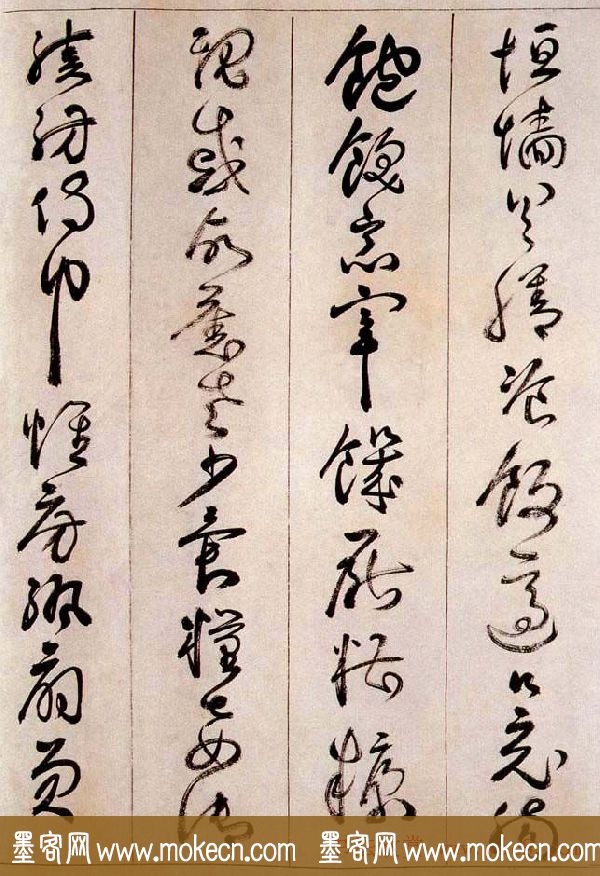 垣墻具膳飡飯適口充腸
飽飫烹宰饑厭糟糠
親戚故舊老少異糧妾御
績紡侍巾帷房紈扇員
墨客网 www.mokecn.com 墨客网 www.mokecn.com